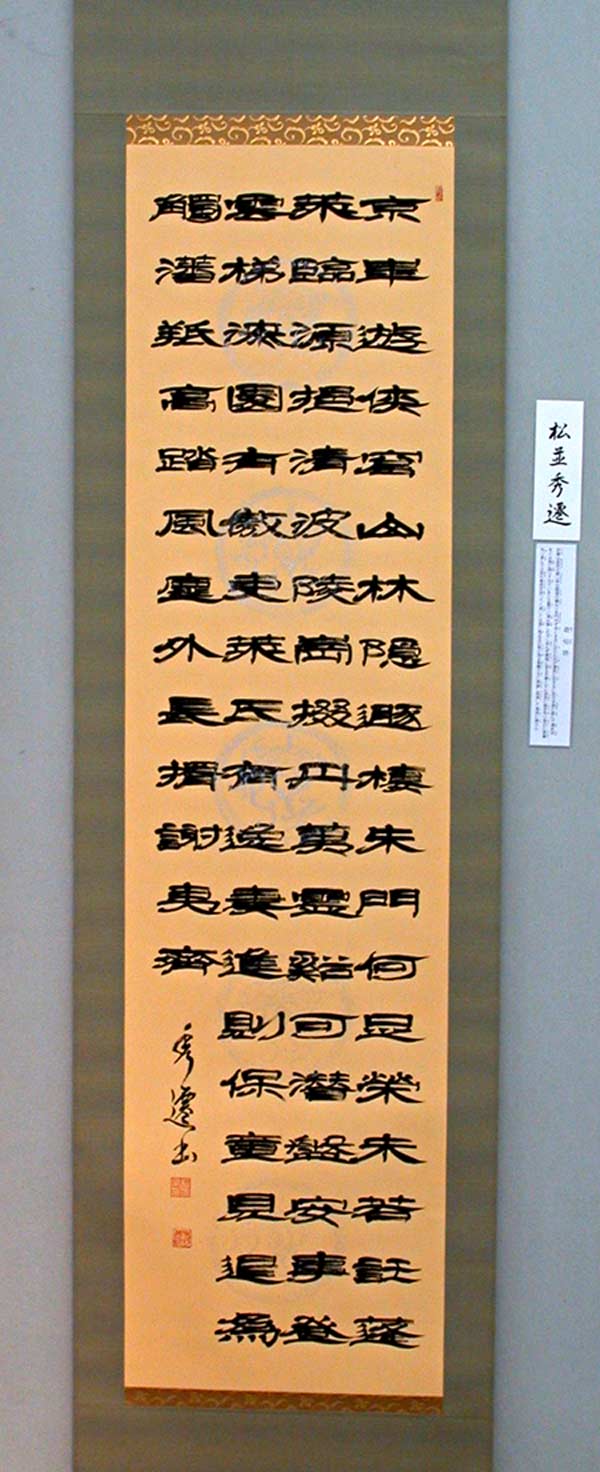 京華遊俠窟山林隱遯棲朱門何足榮未若託蓬
萊臨源挹清波陵崗掇丹荑靈谿可潛盤安事登
雲梯漆園有傲吏萊氏有逸妻進則保龍見退為
觸藩羝高蹈風塵外長揖謝夷齊
秀遷書
松並秀遷